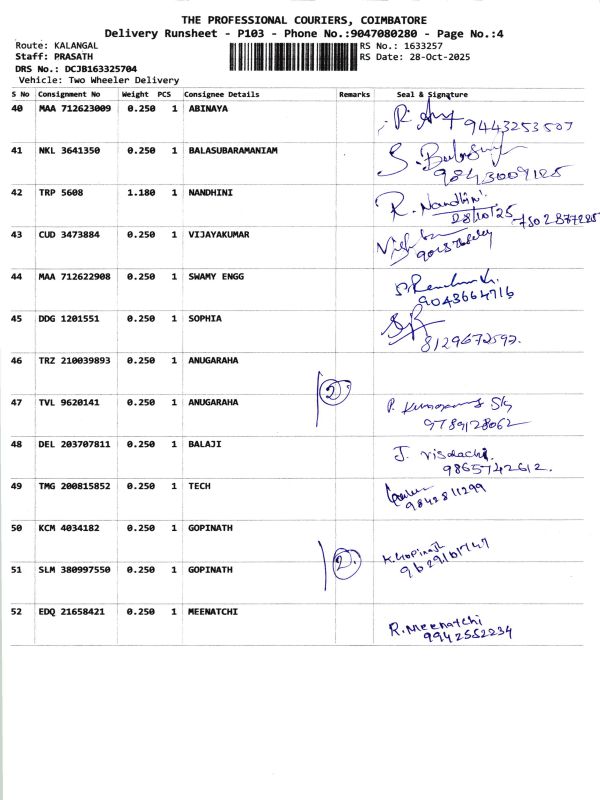 THE PROFESSIONAL COURIERS, COIMBATORE
Delivery Runsheet - P103 - Phone No.:9047080280 - Page No.:4
Route: KALANGAL RS No.: 1633257
Staff: PRASATH RS Date: 28-Oct-2025
DRS No.: DCJB163325704
Vehicle: Two Wheeler Delivery
S No Consignment No Weight PCS Consignee Details Remarks Seal & Signature
40 MAA 712623009 0.250 1 ABINAYA 9443253507
41 NKL 3641350 0.250 1 BALASUBARAMANIAM 9843009125
42 TRP 5608 1.180 1 NANDHINI R. Nandhini
28/10/25 7502877225
43 CUD 3473884 0.250 1 VIJAYAKUMAR
44 MAA 712622908 0.250 1 SWAMY ENGG 9043664716
45 DDG 1201551 0.250 1 SOPHIA 8129672592.
46 TRZ 210039893 0.250 1 ANUGARAHA
2
47 TVL 9620141 0.250 1 ANUGARAHA
9789128062
48 DEL 203707811 0.250 1 BALAJI J. Visalachi.
9865742612.
49 TMG 200815852 0.250 1 TECH 9842811299
50 KCM 4034182 0.250 1 GOPINATH
2 K. Gopinath
51 SLM 380997550 0.250 1 GOPINATH 9629161747
52 EDQ 21658421 0.250 1 MEENATCHI R. Meenatchi
9942552234